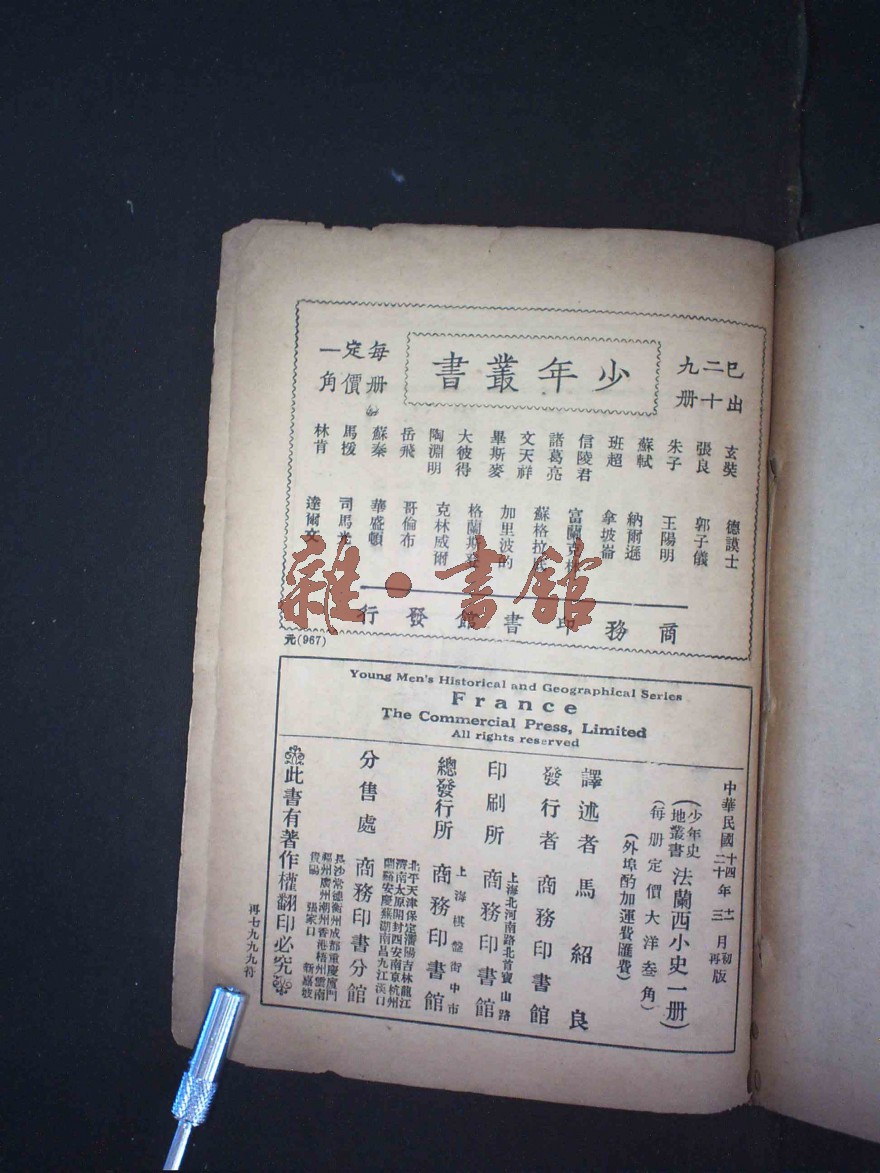 已出
二十
九册
少年叢書
每册
定價
一角
玄奘
張良
朱子
蘇軾
班超
信陵君
諸葛亮
文天祥
畢斯麥
大彼得
陶淵明
岳飛
蘇秦
馬援
林肯
德謨士
郭子儀
王陽明
納爾遜
拿坡崙
富蘭克林
蘇格拉底
加里波的
格蘭斯頓
克林威爾
哥倫布
華盛頓
司馬光
達爾文
商務印書館發行
元(967)
雜·書館
Young Men's Historical and Geographical Series
France
The Commercial Press, Limited
All rights reserved
中華民國十四年十一月初版
二十年三月再版
(少年史地叢書)法蘭西小史一册)
(每册定價大洋叁角)
(外埠酌加運費匯費)
譯述者 馬紹良
發行者 商務印書館
上海北河南路北首寶山路
印刷所 商務印書館
上海棋盤街中市
總發行所 商務印書館
分售處 商務印書分館
北平天津保定瀋陽吉林龍江
濟南太原開封西安南京杭州
蘭谿安慶蕪湖南昌九江漢口
長沙常德衡州成都重慶廈門
福州廣州潮州香港梧州雲南
貴陽 張家口 新嘉坡
此書有著作權翻印必究
再七九九九符